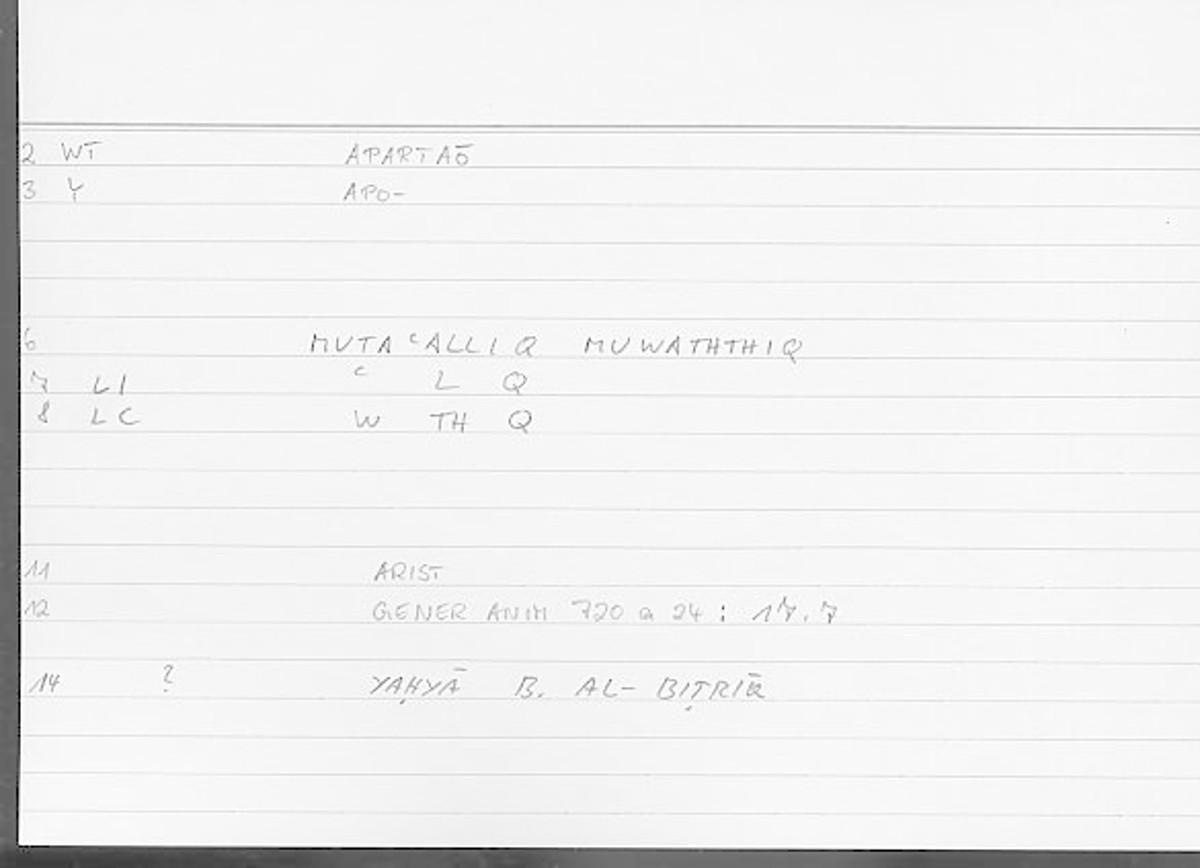 2 WT APARTAŌ
3 Y APO-
6 MUTAᶜALLIQ MUWATHTHIQ
7 LI ᶜ L Q
8 LC W TH Q
11 ARIST
12 GENER ANIM 720 a 24 : 17.7
14 ? YAḤYĀ B. AL- BIṬRĪQ